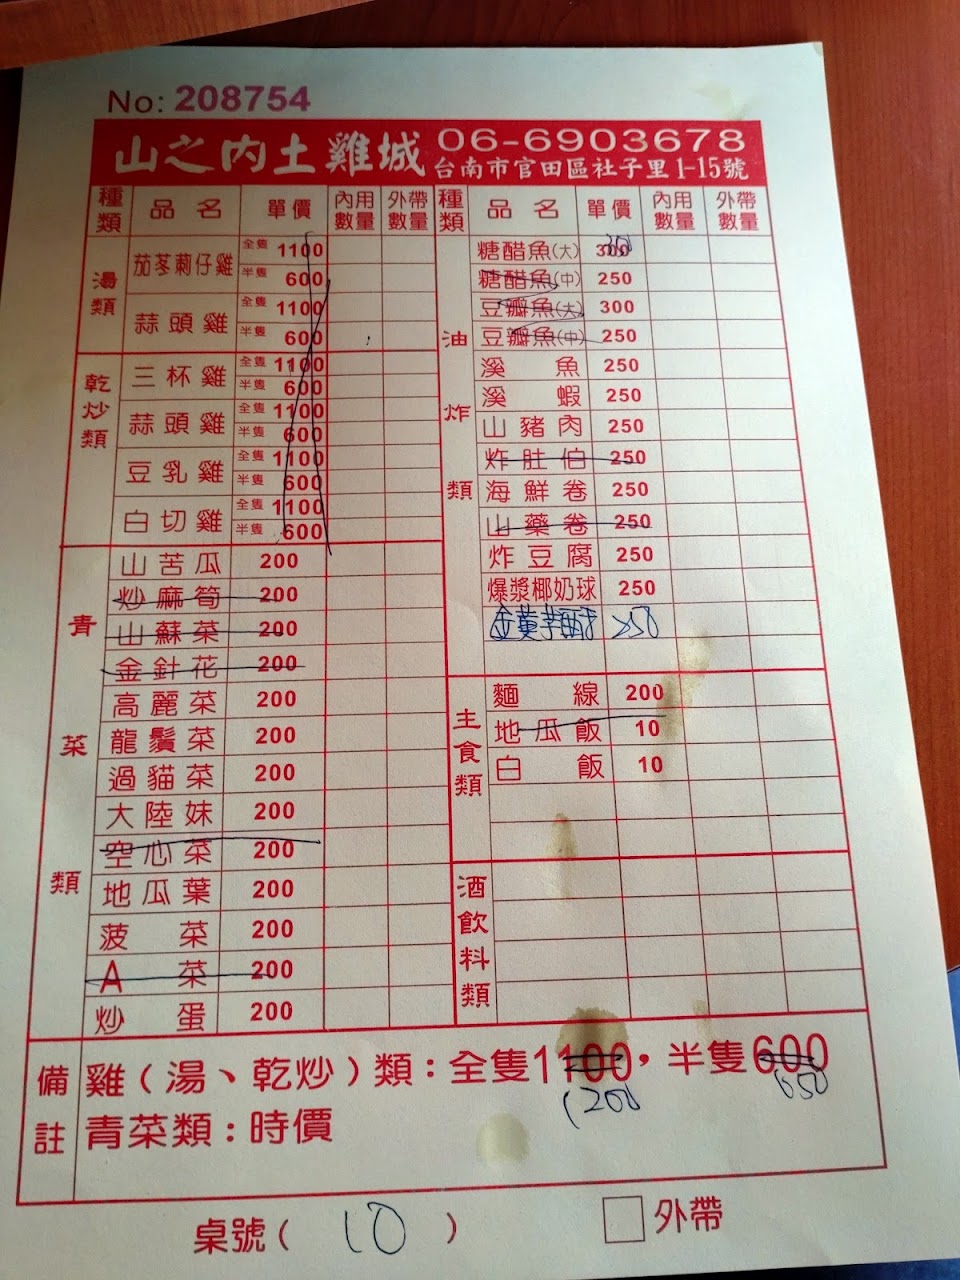 No: 208754
山之內土雞城 06-6903678
台南市官田區社子里1-15號
種類 品名 單價 內用數量 外帶數量
湯類
茄苳莿仔雞 全隻 1100
半隻 600
蒜頭雞 全隻 1100
半隻 600
乾炒類
三杯雞 全隻 1100
半隻 600
蒜頭雞 全隻 1100
半隻 600
豆乳雞 全隻 1100
半隻 600
白切雞 全隻 1100
半隻 600
青菜類
山苦瓜 200
炒麻筍 200
山蘇菜 200
金針花 200
高麗菜 200
龍鬚菜 200
過貓菜 200
大陸妹 200
空心菜 200
地瓜葉 200
菠菜 200
A菜 200
炒蛋 200
種類 品名 單價 內用數量 外帶數量
油炸類
糖醋魚(大) 300
糖醋魚(中) 250
豆瓣魚(大) 300
豆瓣魚(中) 250
溪魚 250
溪蝦 250
山豬肉 250
炸肚伯 250
海鮮卷 250
山藥卷 250
炸豆腐 250
爆漿椰奶球 250
金黃芋 250
主食類
麵線 200
地瓜飯 10
白飯 10
酒飲料類
備註
雞(湯、乾炒)類：全隻1100，半隻600
1200 650
青菜類：時價
桌號( 10 ) 外帶